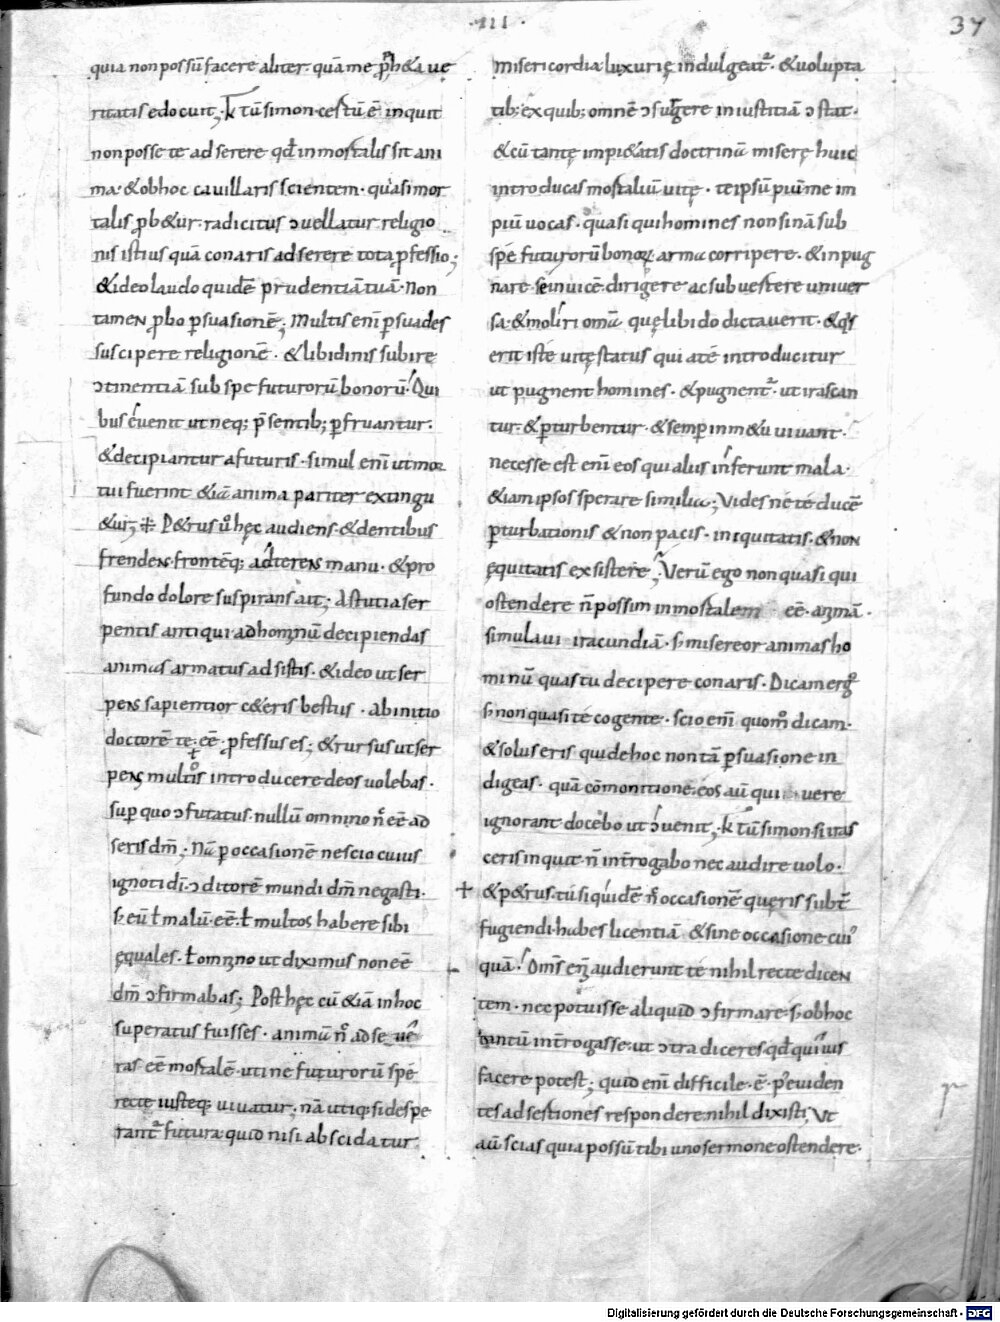 ·III·
37
quia non possū facere aliter· quā me p̄b&a ue
ritatis edocuit; k tū simon· cestū ē inquit
non posse te adserere qđ inmortalis sit ani
ma· & obhoc cauillaris scientem· quasi mor
talis ꝓb&ur· radicitus ɔuellatur religio
nis istius quā conaris adserere tota ꝓfessio;
& ideo laudo quidē prudentiā tuā· Non
tamen ꝓbo ꝑsuasionē; Multis eni ꝑsuades
suscipere religionē· & libidinis subire
ɔtinentiā sub spe futurorū bonorū! Qui
bus euenit ut neq; p̄sentib; ꝑfruantur·
& decipiantur a futuris· simul eni ut mor
tui fuerint &iā anima pariter extingu
&ur; P&rus ů hęc audiens· & dentibus
frendens· frontēq; adterens manu· & pro
fundo dolore suspirans ait; Astutia ser
pentis antiqui ad hominū decipiendas
animas armatus adsistis· & ideo ut ser
pens sapientior c&eris bestiis· ab initio
doctorē te eē· ꝓfessus es; & rursus ut ser
pens multos introducere deos uolebas·
sup quo ɔfutatus· nullū omnino n̄ eē ad
seris dm̄; Nā ꝑ occasionē nescio cuius
ignoti dī· ɔditorē mundi dm̄ negasti·
s; eū ł malū eē· ł multos habere sibi
ęquales· ł omnino ut diximus non eē
dm̄ ɔfirmabas; Post hęc cū &iā in hoc
superatus fuisses· animā n̄ adse ue
ras eē mortalē· uti ne futurorū spē
recte iusteq; uiuatur; nā utiq; si despe
rant̄ futura quid nisi abscidatur
misericordia· luxurię indulgeat̄· & uolupta
tib; ex quib; omnē ɔsurgere iniustitiā ɔstat·
& cū tantę impi&atis doctrinā miserę huic
introducas mortaliū uitę· te ipsū piū me im
piū uocas· quasi qui homines non sinā sub
spē futurorū bonoꝝ arma corripere· & inpug
nare· se inuicē dirigere ac subuertere uniuer
sa· & moliri omā quę libido dictauerit· & q̄s
erit iste uitę status qui a te introducitur
ut pugnent homines· & pugnent̄· ut irascan
tur· & ꝑturbentur· & semp in m&u uiuant·
necesse est eni eos qui aliis inferunt mala·
&iam ipsos sperare similia; Vides ne te ducē
ꝑturbationis & non pacis· iniquitatis· & non
ęquitatis exsistere; Verū ego non quasi qui
ostendere n̄ possim inmortalem eē animā·
simulaui iracundiā· s; misereor animas ho
minū quas tu decipere conaris· Dicam ergo
s; non quasi te cogente· scio eni quom̊ dicam·
& solus eris qui de hoc non tā ꝑsuasione in
digeas· quā cōmonitione· eos aū qui uere
ignorant docebo ut ɔuenit; k tū simon· si iras
ceris inquit n̄ int̄rogabo nec audire uolo·
& p&rus· tu si quidē n̄ occasionē queris subt̄
fugiendi· habes licentiā & sine occasione cui
quā! Oms eni audierunt te nihil recte dicen
tem· nec potuisse aliquid ɔfirmare· s; ob hoc
tantū int̄rogasse· ut ɔtradiceres· qđ quiuis
facere potest; quid eni difficile· ē· p̄ euiden
tes adsertiones respondere· nihil dixisti; Vt
aū scias quia possū tibi uno sermone ostendere·
Digitalisierung gefördert durch die Deutsche Forschungsgemeinschaft - DFG